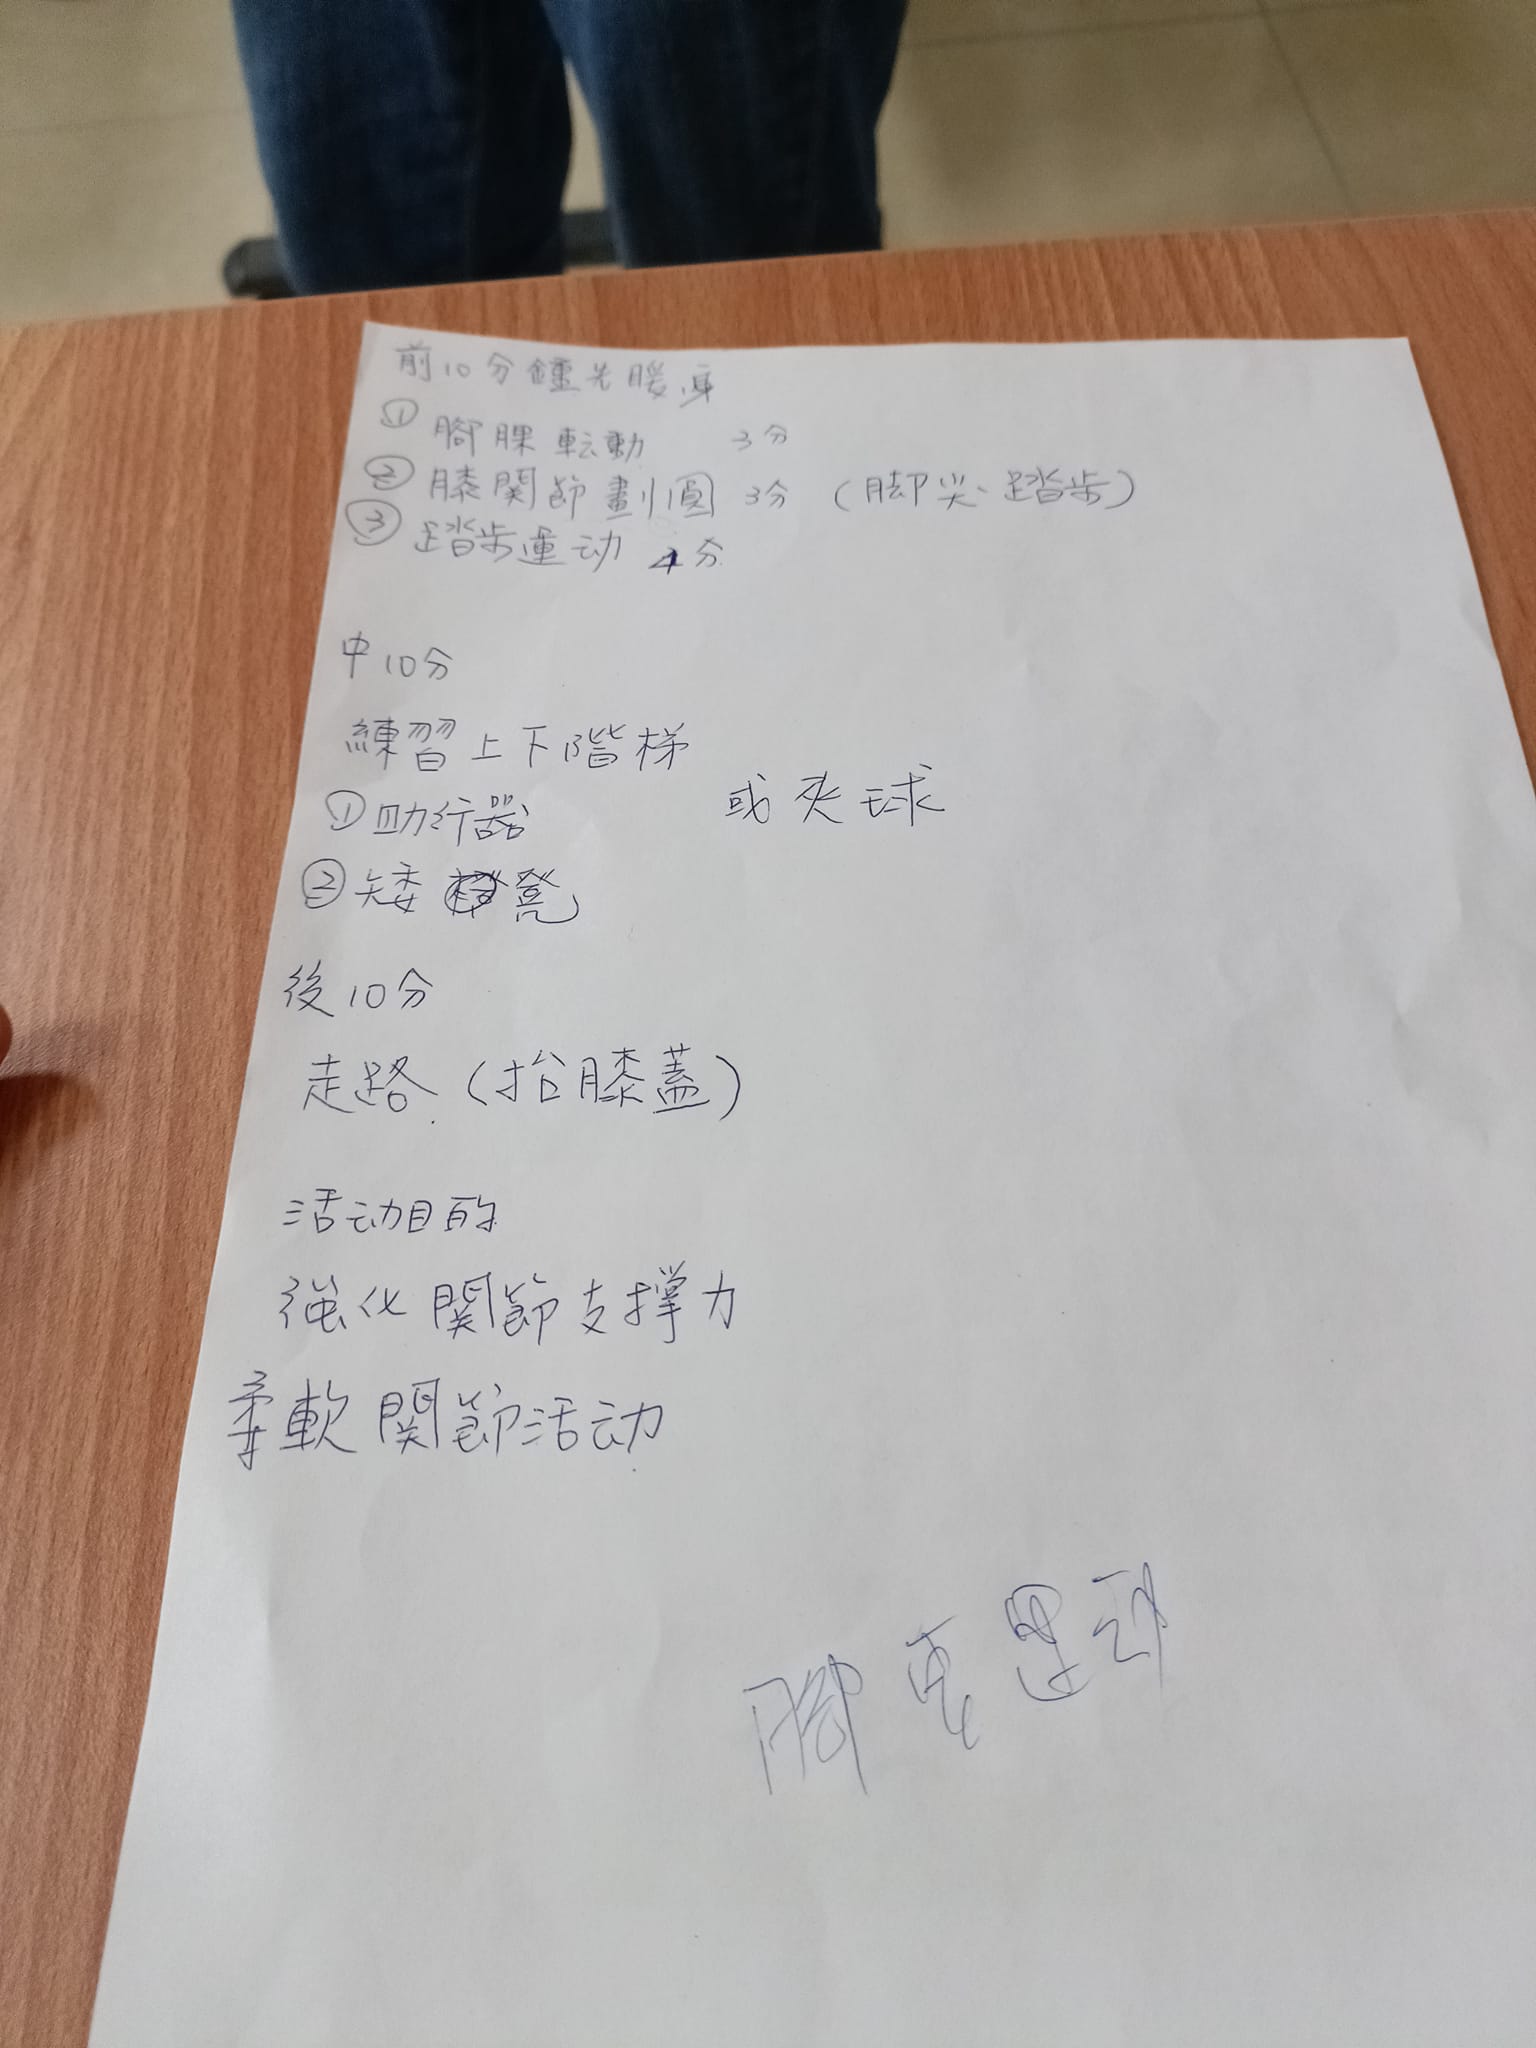 前10分鐘先暖身
① 腳踝転動 3分
② 膝関節劃圓 3分 (脚尖、踏步)
③ 踏步運动 4分
中10分
練習上下階梯
或夾球
① 助行器
② 矮凳
後10分
走路 (抬膝蓋)
活动目的
強化関節支撐力
柔軟関節活动
腳